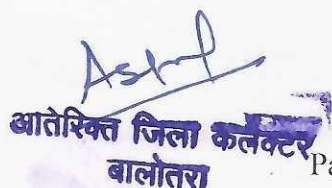 आतेरिक्त जिला कलेक्टर
बालोतरा
Pa